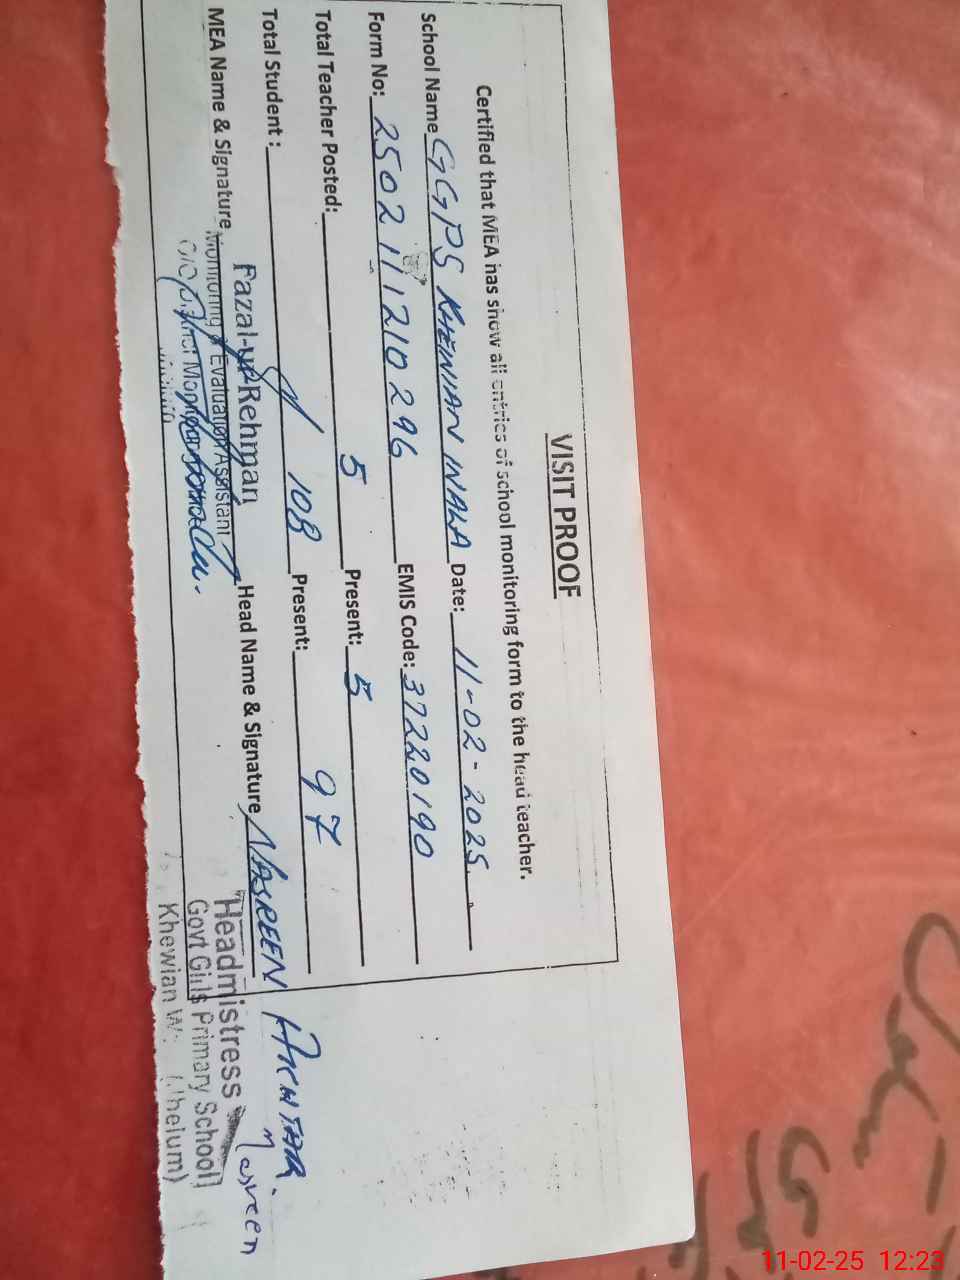 VISIT PROOF
Certified that MEA has show all entries of school monitoring form to the head teacher.
School Name GGPS KHEWIAN WALA Date: 11-02-2025
Form No: 2502111210296 EMIS Code: 37220190
Total Teacher Posted: 5 Present: 5
Total Student: 108 Present: 97
MEA Name & Signature Fazal-ur-Rehman Head Name & Signature NASREEN AKHTAR.
Monitoring & Evaluation Assistant
Nasreen
Headmistress
Govt Girls Primary School
Khewian W (Jhelum)
11-02-25 12:23